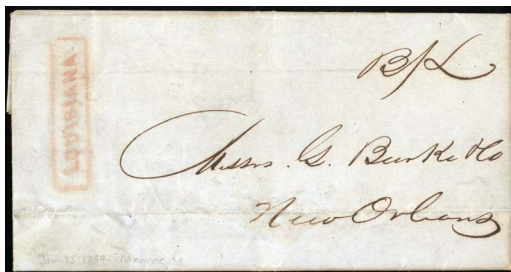 LOUISIANA.
B/L
Messrs. G. Burke & Co
New Orleans
Jan. 25 1849 - Monroe, La.